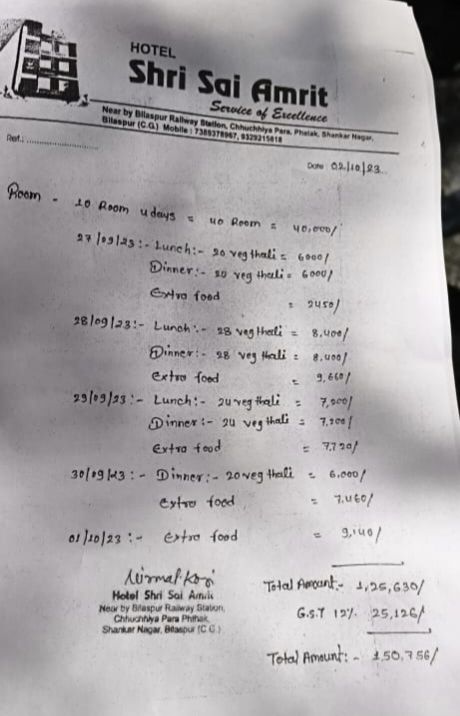 HOTEL
Shri Sai Amrit
Service of Excellence
Near by Bilaspur Railway Station, Chhuchhiya Para, Phatak, Shankar Nagar,
Bilaspur (C.G.) Mobile : 7389378967, 9329215618
Ref.:
Date 02/10/23
Room - 10 Room 4 days = 40 Room = 40,000/
27/09/23:- Lunch:- 20 veg thali = 6000/
Dinner:- 20 veg thali = 6000/
Extra food = 2450/
28/09/23:- Lunch:- 28 veg thali = 8,400/
Dinner:- 28 veg thali = 8,400/
Extra food = 9,660/
29/09/23:- Lunch:- 24 veg thali = 7,200/
Dinner:- 24 veg thali = 7,200/
Extra food = 7,720/
30/09/23:- Dinner:- 20 veg thali = 6,000/
Extra food = 7,460/
01/10/23:- Extra food = 9,140/
Total Amount:- 1,25,630/
G.S.T 12% 25,126/
Total Amount:- 1,50,756/
Hotel Shri Sai Amrit
Near by Bilaspur Railway Station,
Chhuchhiya Para Phthak,
Shankar Nagar, Bilaspur (C.G.)